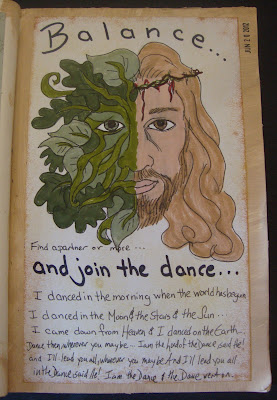 Balance...
JUN 20 2012
Find a partner or more ...
and join the dance...
I danced in the morning when the world has begun
I danced in the Moon & the Stars & the Sun...
I came down from Heaven & I danced on the Earth...
Dance then wherever you may be... I am the Lord of the Dance, said he!
and I'll lead you all, wherever you may be And I'll lead you all
in the Dance, said He! I am the Dance & the Dance went on...